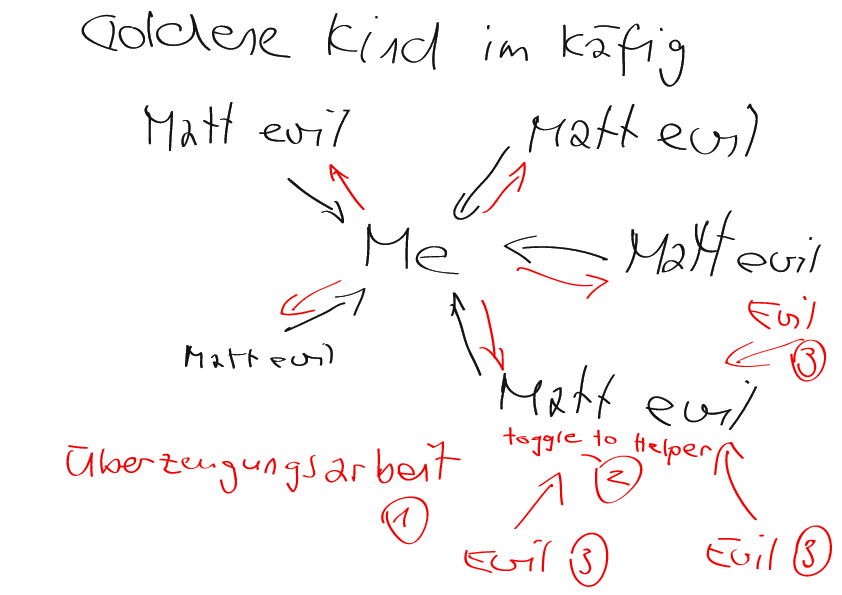 Goldene Kind im Käfig
Matt evil
Matt evil
Me
Matt evil
Evil
3
Matt evil
Matt evil
toggle to Helper
2
Überzeugungsarbeit
1
Evil 3
Evil 3